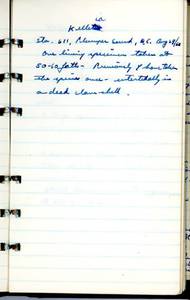 Kelletia
Sta. 611, Plumper Sound, B.C. Aug
One living specimen taken at
50-60 fath - Previously I have taken
the species once - intertidally in
a dead clam-shell.